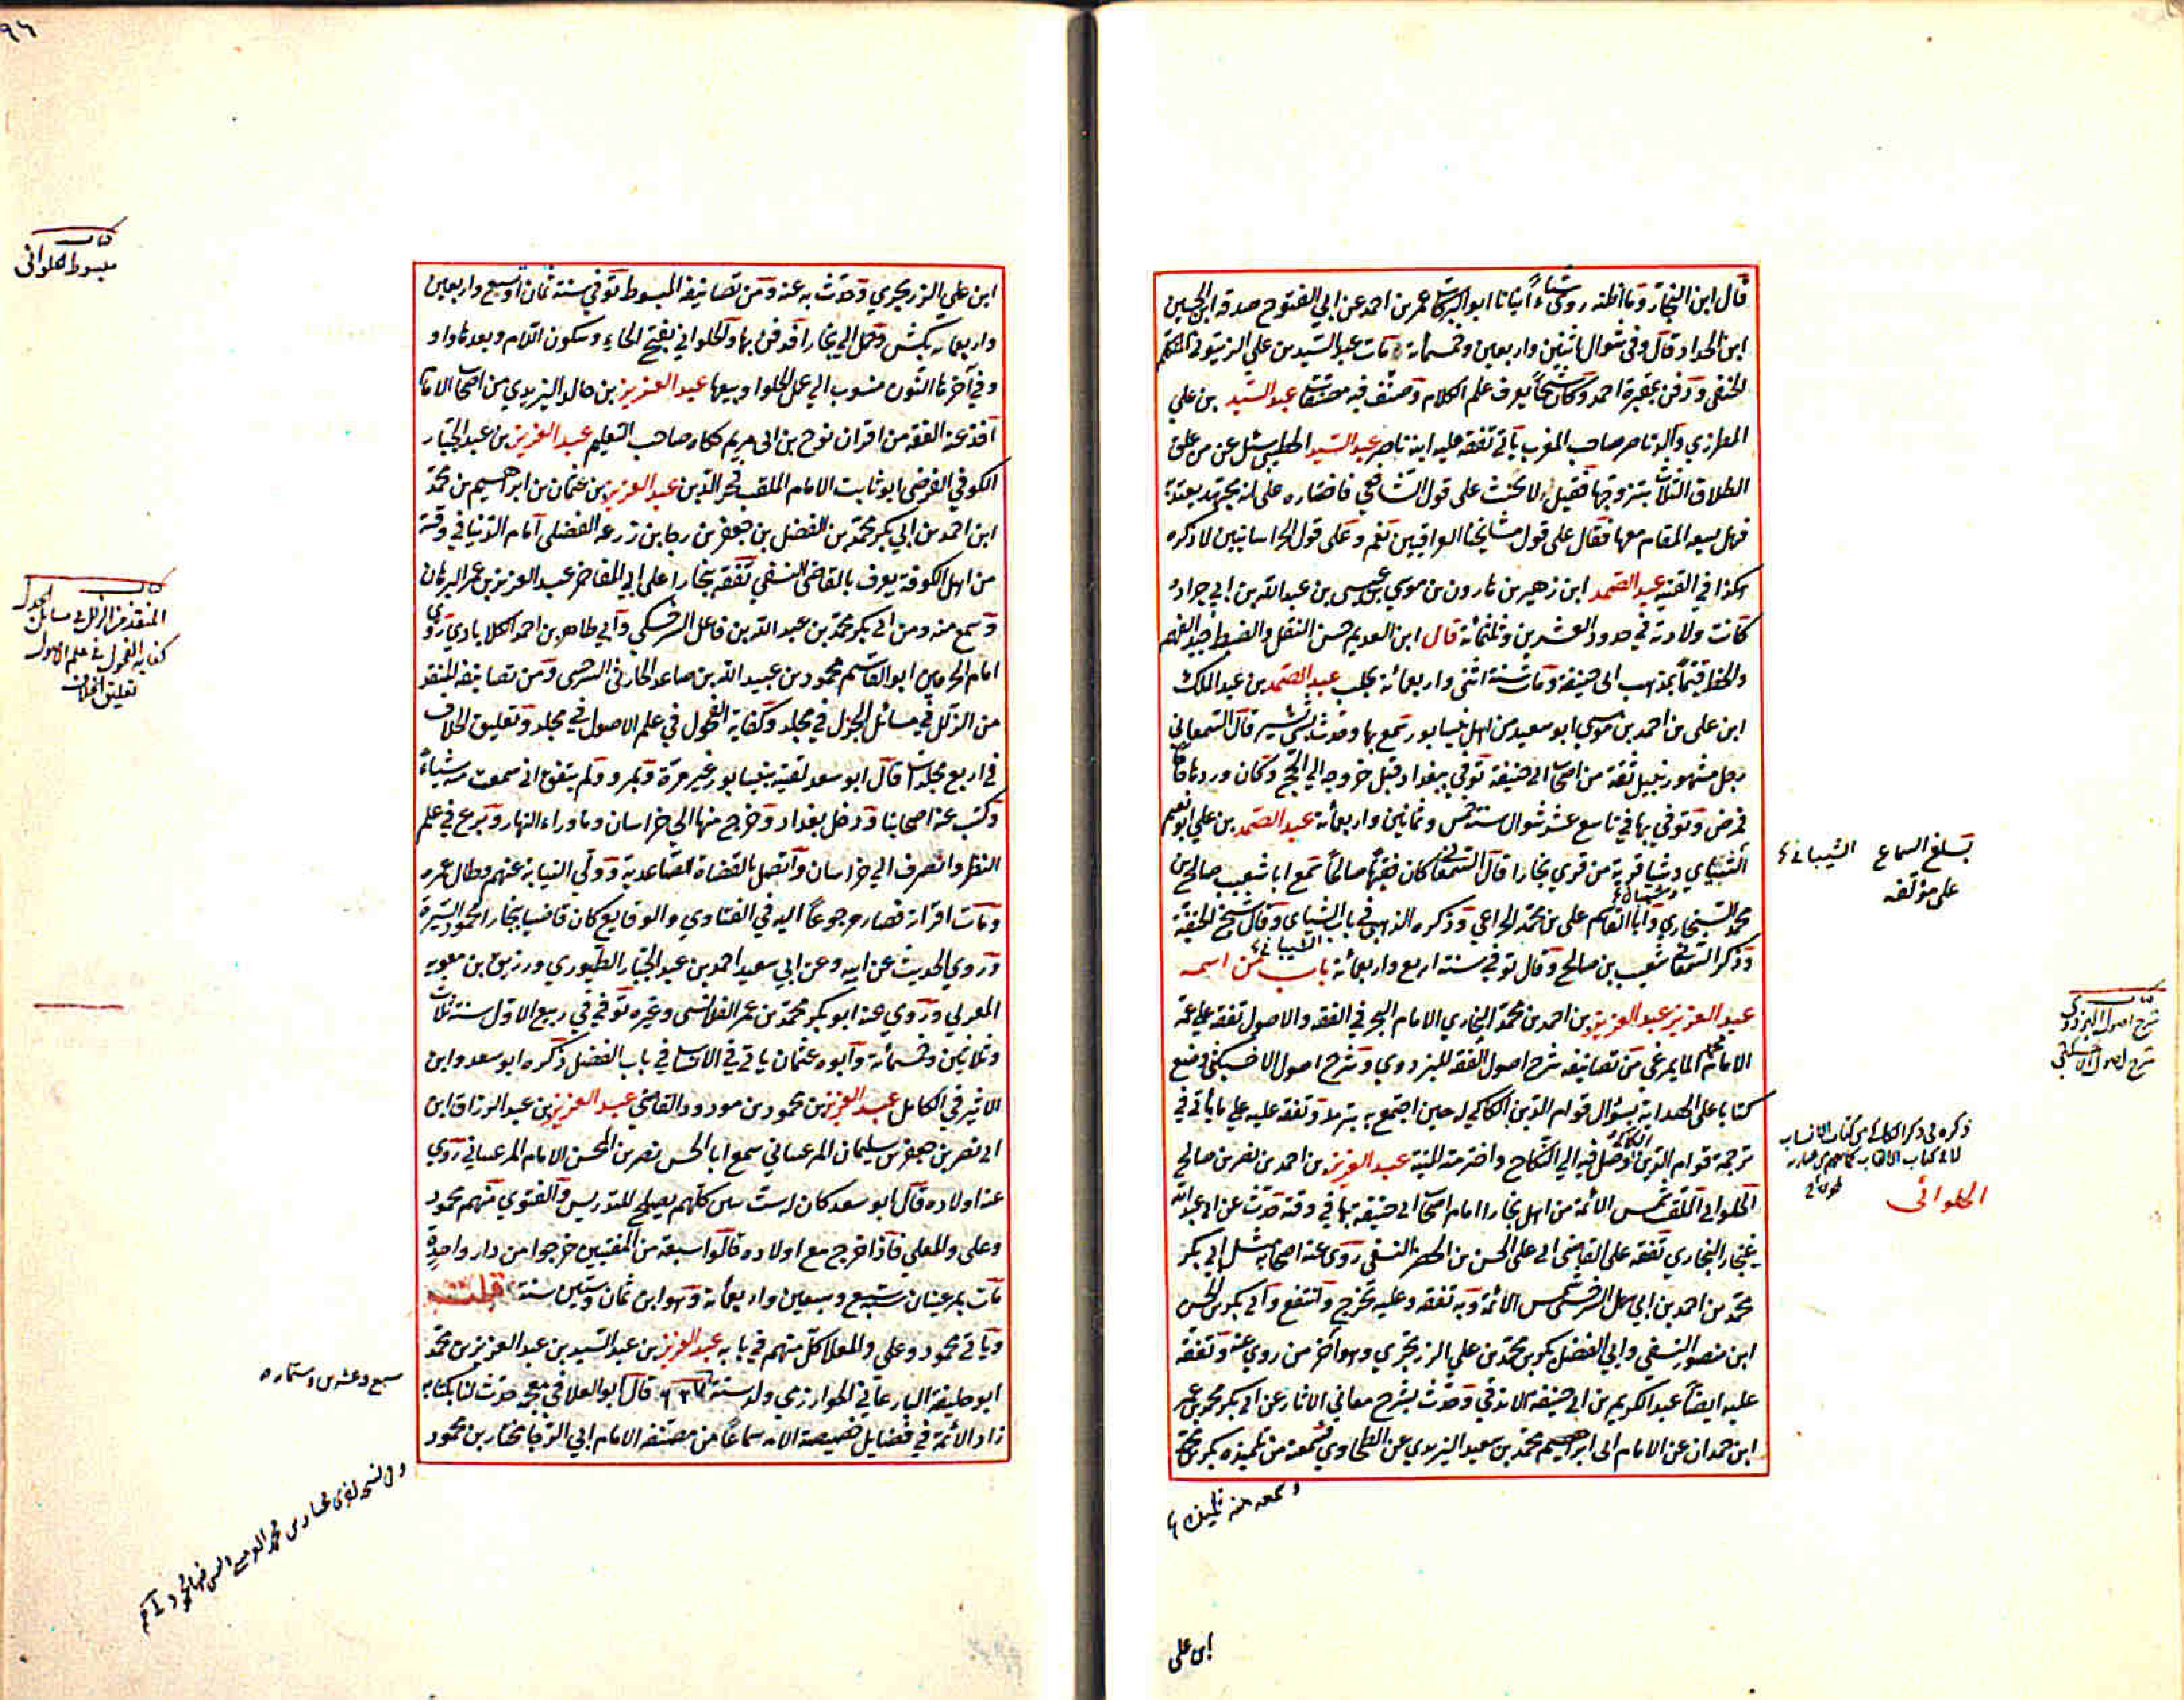 قال ابن النجار وما اظنه روى شيئا انبانا ابو البركات عمر بن احمد عن ابي الفتوح صدقة ابن الحسين
ابن الحداد قال وفي شوال اثنين واربعين وخمسمائة مات عبد السيد بن علي الزيتوني المتكلم
الحنفي ودفن بمقبرة احمد وكان شيخا يعرف علم الكلام وصنف فيه مصنفات عبد السيد بن علي
المطرزي والد ناصر صاحب المغرب ياتي تفقه عليه ابنه ناصر عبد السيد الخطيبي سئل عن من علق
الطلاق الثلاث بتزوجها فقيل لا يحنث على قول الشافعي فاختاره على انه مجتهد يعتد به
فهل يسعه المقام معها فقال على قول مشايخنا العراقيين نعم وعلى قول الخراسانيين لا ذكره
هكذا في القنية عبد الصمد ابن زهير بن هارون بن موسي بن عيسى بن عبد الله بن ابي جراده
كانت ولادته في حدود العشرين وثلثمائة قال ابن العديم حسن النقل والضبط جيد الفهم
والخط قيما بمذهب ابي حنيفة ومات سنة اثنى واربعمائة بحلب عبد الصمد بن عبد الملك
ابن علي بن احمد بن موسى ابو سعيد من اهل نيسابور سمع بها وحدث بشيء يسير قال السمعاني
رجل مشهور نبيل ثقة من اصحاب ابي حنيفة توفي ببغداد قبل خروجه الي الحج وكان وردها حاجا
فمرض وتوفي بها في تاسع عشر شوال سنة خمس وثمانين واربعمائة عبد الصمد بن علي ابو نعيم
الشيباي وشيا قرية من قري بخارا قال السمعاني كان فقيها صالحا سمع ابا شعيب صالح بن
محمد السنجاري وابا القاسم علي بن محمد الخزاعي وذكره الذهبي في باب الشياى وقال شيخ الحنفية
وذكر السمعاني شعيب بن صالح وقال توفي سنة اربع واربعمائة باب من اسمه
عبد العزيز عبد العزيز بن احمد بن محمد البخاري الامام البحر في الفقه والاصول تفقه علي عمه
الامام محمد المايمرغي من تصانيفه شرح اصول الفقه للبزدوي وشرح اصول الاخسيكثي وضع
كتابا على الهداية بسؤال قوام الدين الكاكي له حين اجتمع به بترمد وتفقه عليه علي ما ياتي في
ترجمة قوام الدين الكاكي وصل فيه الي النكاح واخترمته المنية عبد العزيز بن احمد بن نصر بن صالح
الحلواني الملقب شمس الائمة من اهل بخارا امام اصحاب ابي حنيفة بها في وقته حدث عن ابي عبد الله
غنجار البخاري تفقه على القاضي ابي علي الحسن بن الخضر النسفي روى عنه اصحابه مثل ابي بكر
محمد بن احمد بن ابي سهل السرخسي شمس الائمة وبه تفقه وعليه تخرج وانتفع وابي بكر بن الحسن
ابن منصور النسفي وابي الفضل بكر بن محمد بن علي الزرنجري وهو اخر من روي عنه وتفقه
عليه ايضا عبد الكريم بن ابي حنيفة الاندقي وحدث بشرح معاني الاثار عن ابي بكر محمد بن عمر
ابن حمدان عن الامام ابي ابراهيم محمد بن سعيد اليزيدي عن الطحاوي سمعه من تلميذه بكر بن محمد
وسمعه منه تلميذه
ابن علي
بلغ السماع
على مؤلفه
الشيباني
كتاب
شرح اصول البزدوي
شرح اصول الاخسيكثي
الحلوائى
ابن علي الزرنجري وحدث به عنه ومن تصانيفه المبسوط توفي سنة ثمان او تسع واربعين
واربعمائة بكش وحمل الي بخارا فدفن بها والحلواني بفتح الحاء وسكون اللام وبعدها واو
وفي آخرها النون منسوب الي عمل الحلوا وبيعها عبد العزيز بن خالد اليزيدي من اصحاب الامام
اخذ عنه الفقه من اقران نوح بن ابي مريم ذكره صاحب التعليم عبد العزيز بن عبد الجبار
الكوفي الفرضي ابو ثابت الامام الملقب فخر الدين عبد العزيز بن عثمان بن ابراهيم بن محمد
ابن احمد بن ابي بكر محمد بن الفضل بن جعفر بن رجا بن زرعه الفضلي امام الدنيا في وقته
من اهل الكوفة يعرف بالقاضي النسفي تفقه بخارا على ابي المفاخر عبد العزيز بن عمر البرهان
وسمع منه ومن ابي بكر محمد بن عبد الله بن فاعل السرخسكي وابي طاهر بن احمد الكلاباذي روى
امام الحرمين ابو القاسم محمود بن عبيد الله بن صاعد الحارثي السرخسي ومن تصانيفه المنقذ
من الزلل في مسائل الجدل في مجلد وكفاية الفحول في علم الاصول في مجلد وتعليق الخلاف
في اربع مجلدات قال ابو سعد لقيته بنيسابور غير مرة وبمرو ولم يتفق اني سمعت منه شياء
وكتب عنه اصحابنا ودخل بغداد وخرج منها الي خراسان وما وراء النهار وبرع في علم
النظر وانصرف الي خراسان واتصل بالقضاة الصاعدية وولي النيابة عنهم وطال عمره
ومات اقرانه فصار مرجوعا اليه في الفتاوي والوقايع كان قاضيا بخارا محمود السيرة
وروي الحديث عن ابيه وعن ابي سعيد احمد بن عبد الجبار الطيوري ورزيق بن معويه
المغربي وروي عنه ابو بكر محمد بن عمر القلانسي وغيره توفي في ربيع الاول سنة ثلاث
وثمانين وخمسمائة وابوه عثمان ياتي في الانساب في باب الفضل ذكره ابو سعد وابن
الاثير في الكامل عبد العزيز بن محمود بن مودود القاضي عبد العزيز بن عبد الرزاق ابن
ابي نصر بن جعفر بن سليمان المرغيناني سمع ابا الحسن نصر بن المحسن الامام المرغيناني روي
عنه اولاده قال ابو سعد كان له ست بنين كلهم يصلح للتدريس والفتوي منهم محمود
وعلى والمعلي فاذا خرج مع اولاده قالوا سبعة من المفتيين خرجوا من دار واحدة
مات بمرغينان سنة سبع وسبعين واربعمائة وهو ابن ثمان وستين سنة قلت
وياتي محمود وعلي والمعلا كل منهم في بابه عبد العزيز بن عبد السيد بن عبد العزيز بن محمد
ابو خليفة البارعاني الخوارزمي ولد سنة ٦٢٧ قال ابو العلا في معجمه حدث لنا بكتاب
زاد الائمة في فضايل خصيصة الامه سماعا من مصنفه الامام ابي الرجا مختار بن محمود
كتاب
مبسوط الحلوانى
كتاب
المنقذ من الزلل في مسائل الجدل
كفاية الفحول في علم الاصول
تعليق الخلاف
سبع وعشرين وستمائة
٩٤